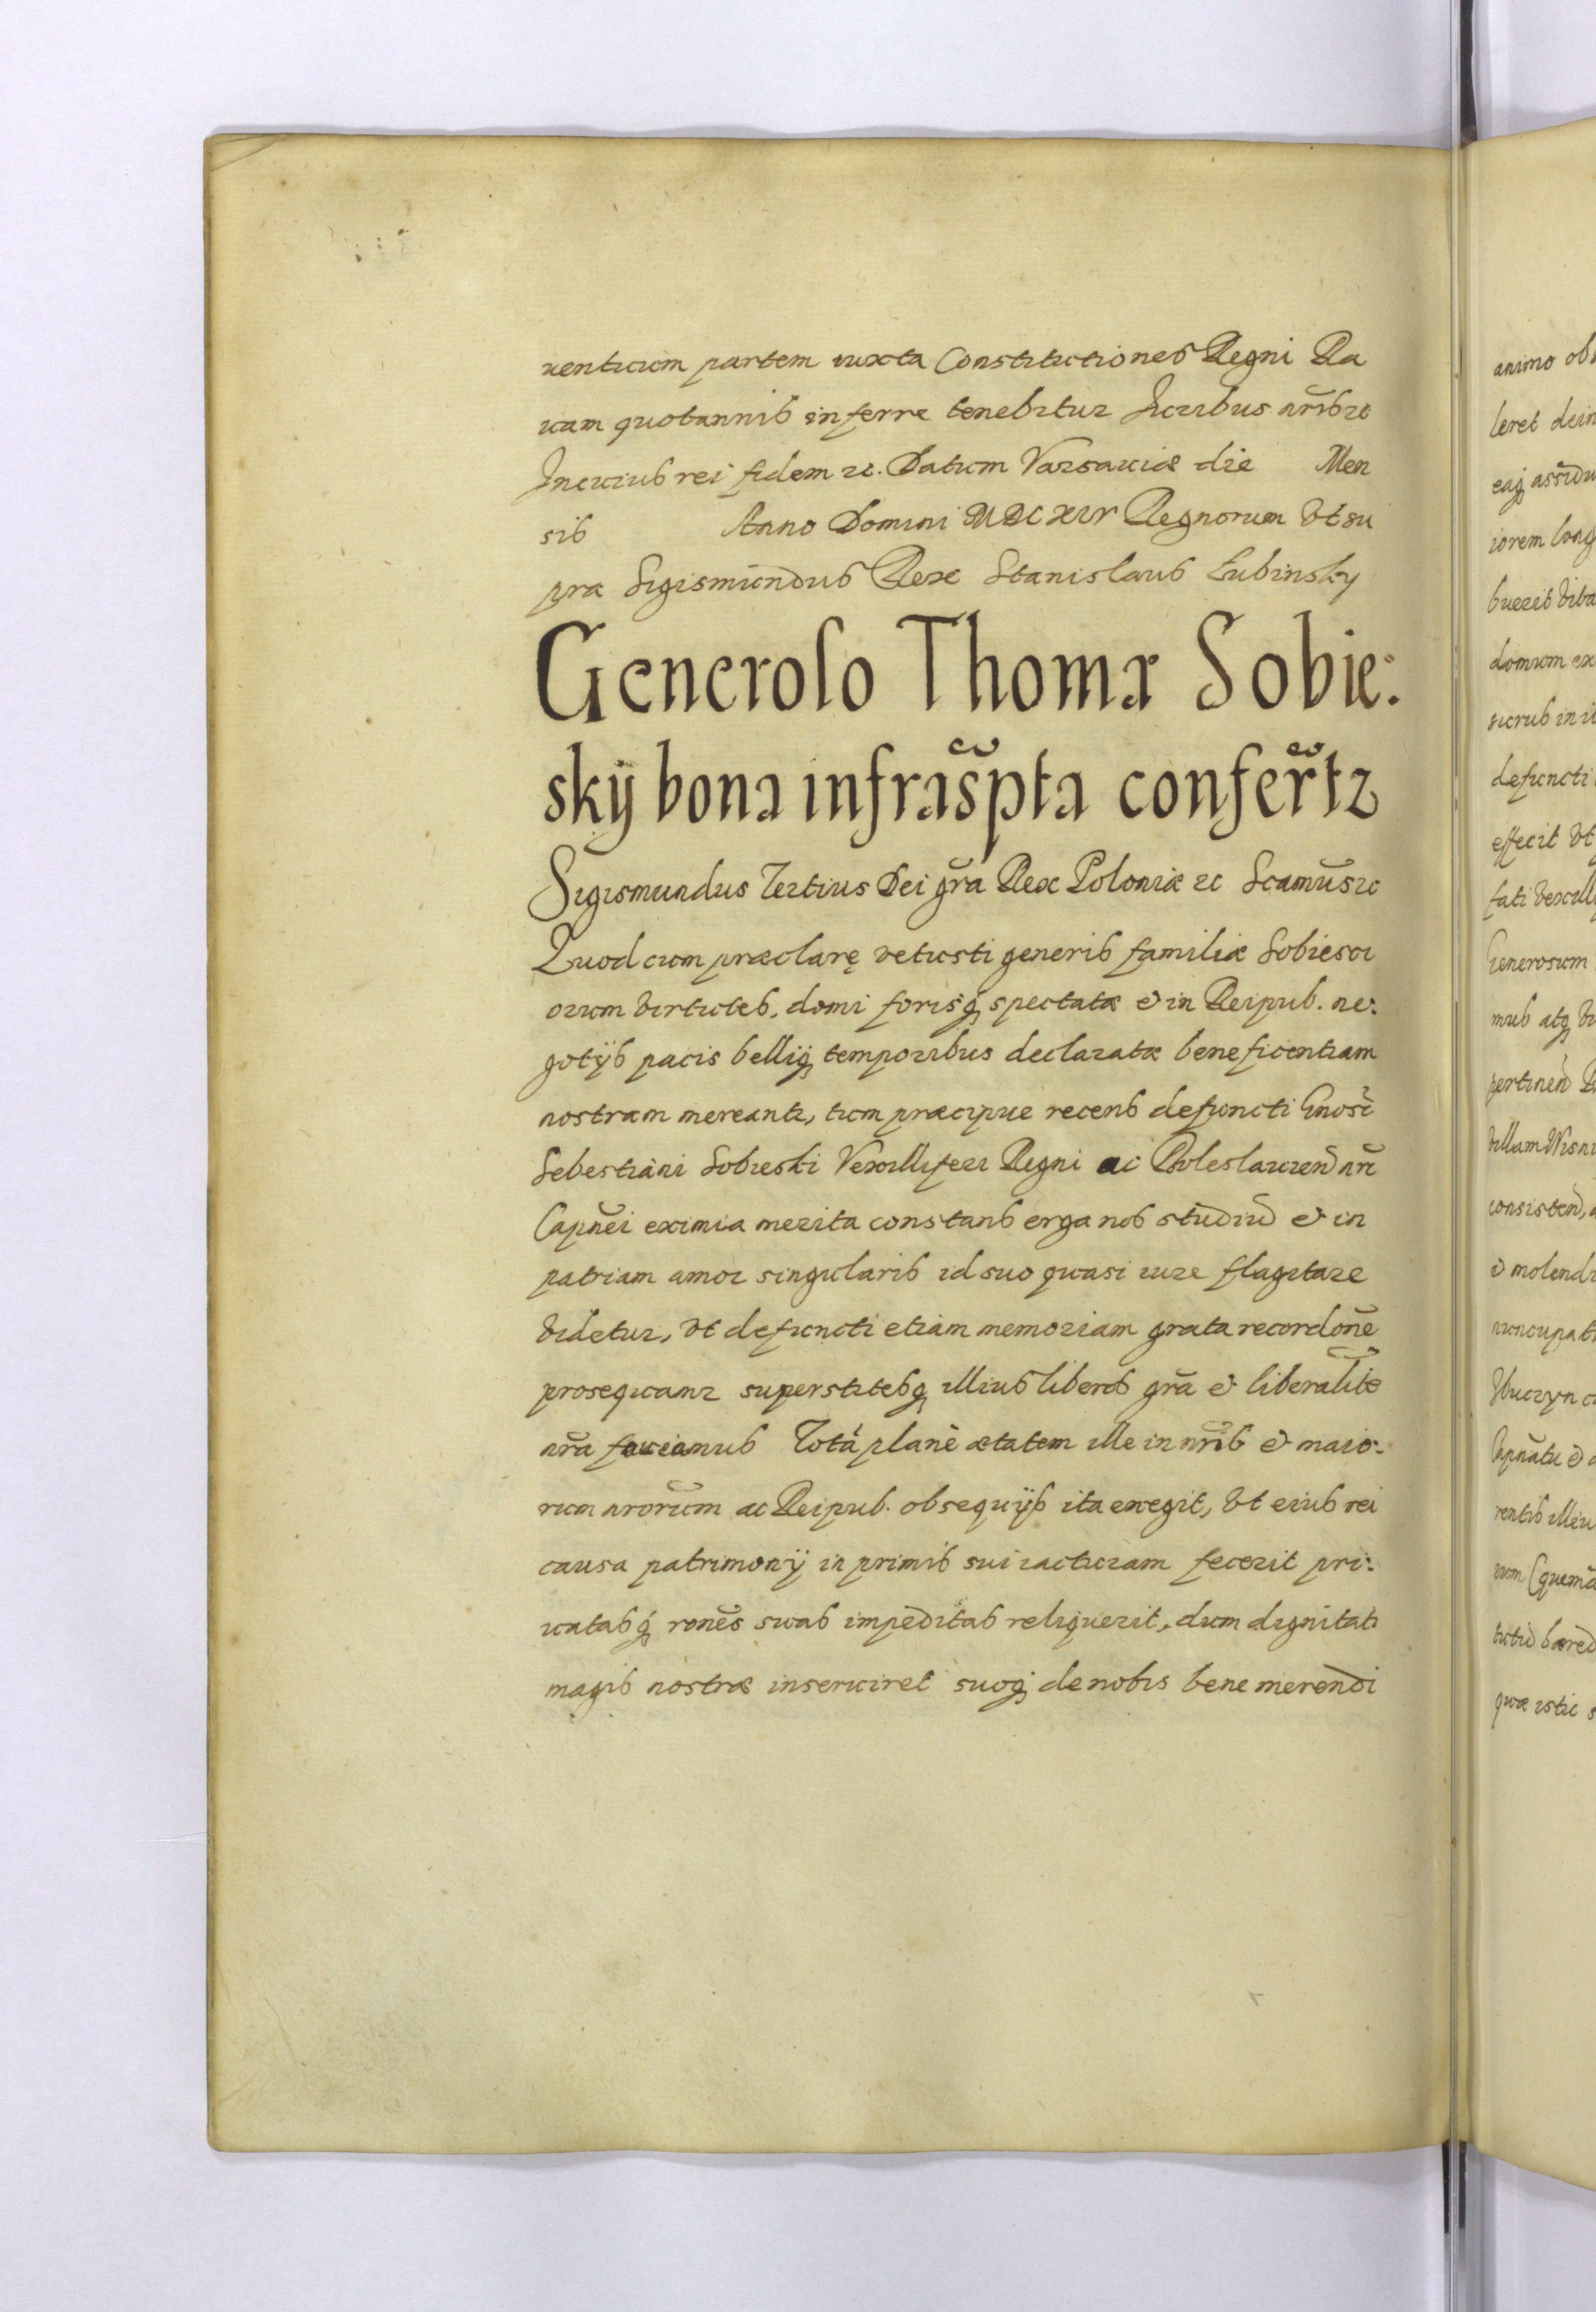 uentuum partem iuxta Constitutiones Regni Ra
uam quotannis inferre tenebitur Iuribus nr̃is ꝛc
In cuius rei fidem ꝛc. Datum Varsauiæ die Men
sis Anno Domini MDCXIV Regnorum vt su
pra Sigismundus Rex Stanislaus Łubinsky
Generoso Thomæ Sobie:
skÿ bona infrãsc̃pta conferũtz
Sigismundus Tertius Dei gr̃a Rex Poloniæ ꝛc Scamũs ꝛc
Quod cum præclarę vetusti generis familiæ Sobiesci
orum virtutes, domi forisq́ꝫ spectatæ & in Reipub. ne:
gotÿs pacis belliqꝫ temporibus declaratæ beneficentiam
nostram mereantꝛ, tum præcipue recens defuncti Gnosi
Sebestiani Sobieski Vexilliferi Regni ac Boleslauień nr̃i
Capñei eximia merita constans erga nos studiũ & in
patriam amor singularis id suo quasi iure flagitare
videtur, vt defuncti etiam memoriam grata recordõne
prosequamꝛ superstitesqꝫ illius liberos gr̃a & liberalĩte
nr̃a foueamus Totã planè ætatem ille in nr̃is & maio:
rum nrorũm ac Reipub. obsequÿs ita exegit, vt eius rei
causa patrimonÿ in primis sui iacturam fecerit pri:
uatasq́ꝫ ronẽs suas impeditas reliquerit, dum dignitati
magis nostræ inseruiret suoqꝫ de nobis bene merendi
animo ob
leret dein
eaqꝫ assidu
iorem long
buerit vita
domum ex
in
defuncti
effecit vt
fati vexill
Generosum
mus atqꝫ
pertineñ
villam Wisni
consisteñ,
& molend
nuncupat
Capñatu &
rentis illiu
quæ istic s